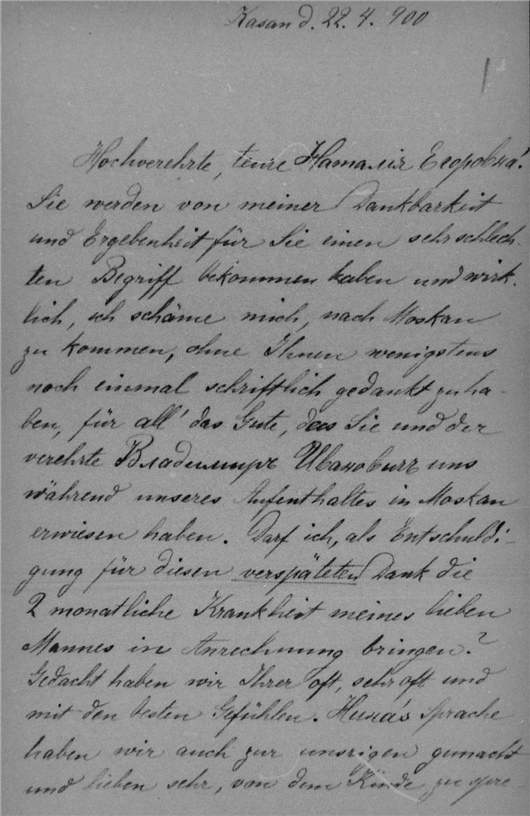 Kasan d. 22. 4. 900
Hochverehrte, teure Наталія Егоровна!
Sie werden von meiner Dankbarkeit
und Ergebenheit für Sie einen sehr schlech
ten Begriff bekommen haben und wirk-
lich, ich schäme mich, nach Moskau
zu kommen, ohne Ihnen wenigstens
noch einmal schriftlich gedankt zu ha-
ben, für all' das Gute, das Sie und der
verehrte Владимиръ Ивановичъ uns
während unseres Aufenthaltes in Moskau
erwiesen haben. Darf ich, als Entschuldi-
gung für diesen verspäteten Dank die
2 monatliche Krankheit meines lieben
Mannes in Anrechnung bringen?
Gedacht haben wir Ihrer oft, sehr oft und
mit den besten Gefühlen. Sprache
haben wir auch zur unsrigen gemacht
und lieben sehr, von dem Kinde zu spre